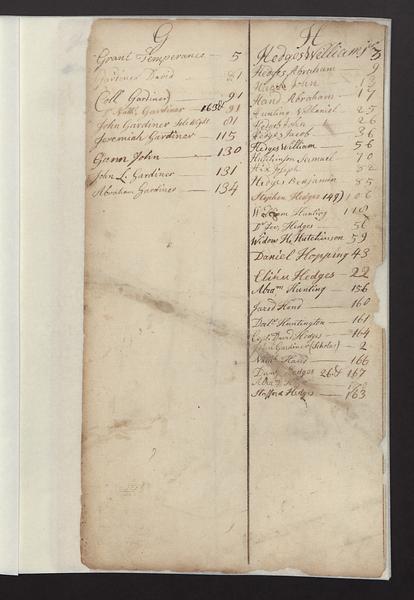 G
Grant Temperance — 5
Gardiner David — 81
Coll Gardiner) 91
Nathll Gardiner 163& 91
John Gardiner 81
Jeremiah Gardiner — 115
Gann John — 130
John L. Gardiner — 131
Abraham Gardiner — 134
H
Hedges William 3
Hedges Abraham — 9
John — 13
Hand Abraham — 17
Hunting Nathaniel — 25
Hedges John — 26
Hedges Jacob — 36
Hedges William — 56
Hutchinson Samuel 70
Hix Joseph — 82
Hedges Benjamin 85
Stephen Hedges 149) 106
William Hunting — 118
Hedges — 56
Widow H. Hutchinson — 59
Daniel Hopping 43
Elihu Hedges — 22
Abram Hunting — 156
Jared Hand 160
Huntington — 161
Capt. David Hedges — 164
John Gardiner (Scholar) — 2
Hand — 166
Hedges 26& 167
Stafford Hedges — 163